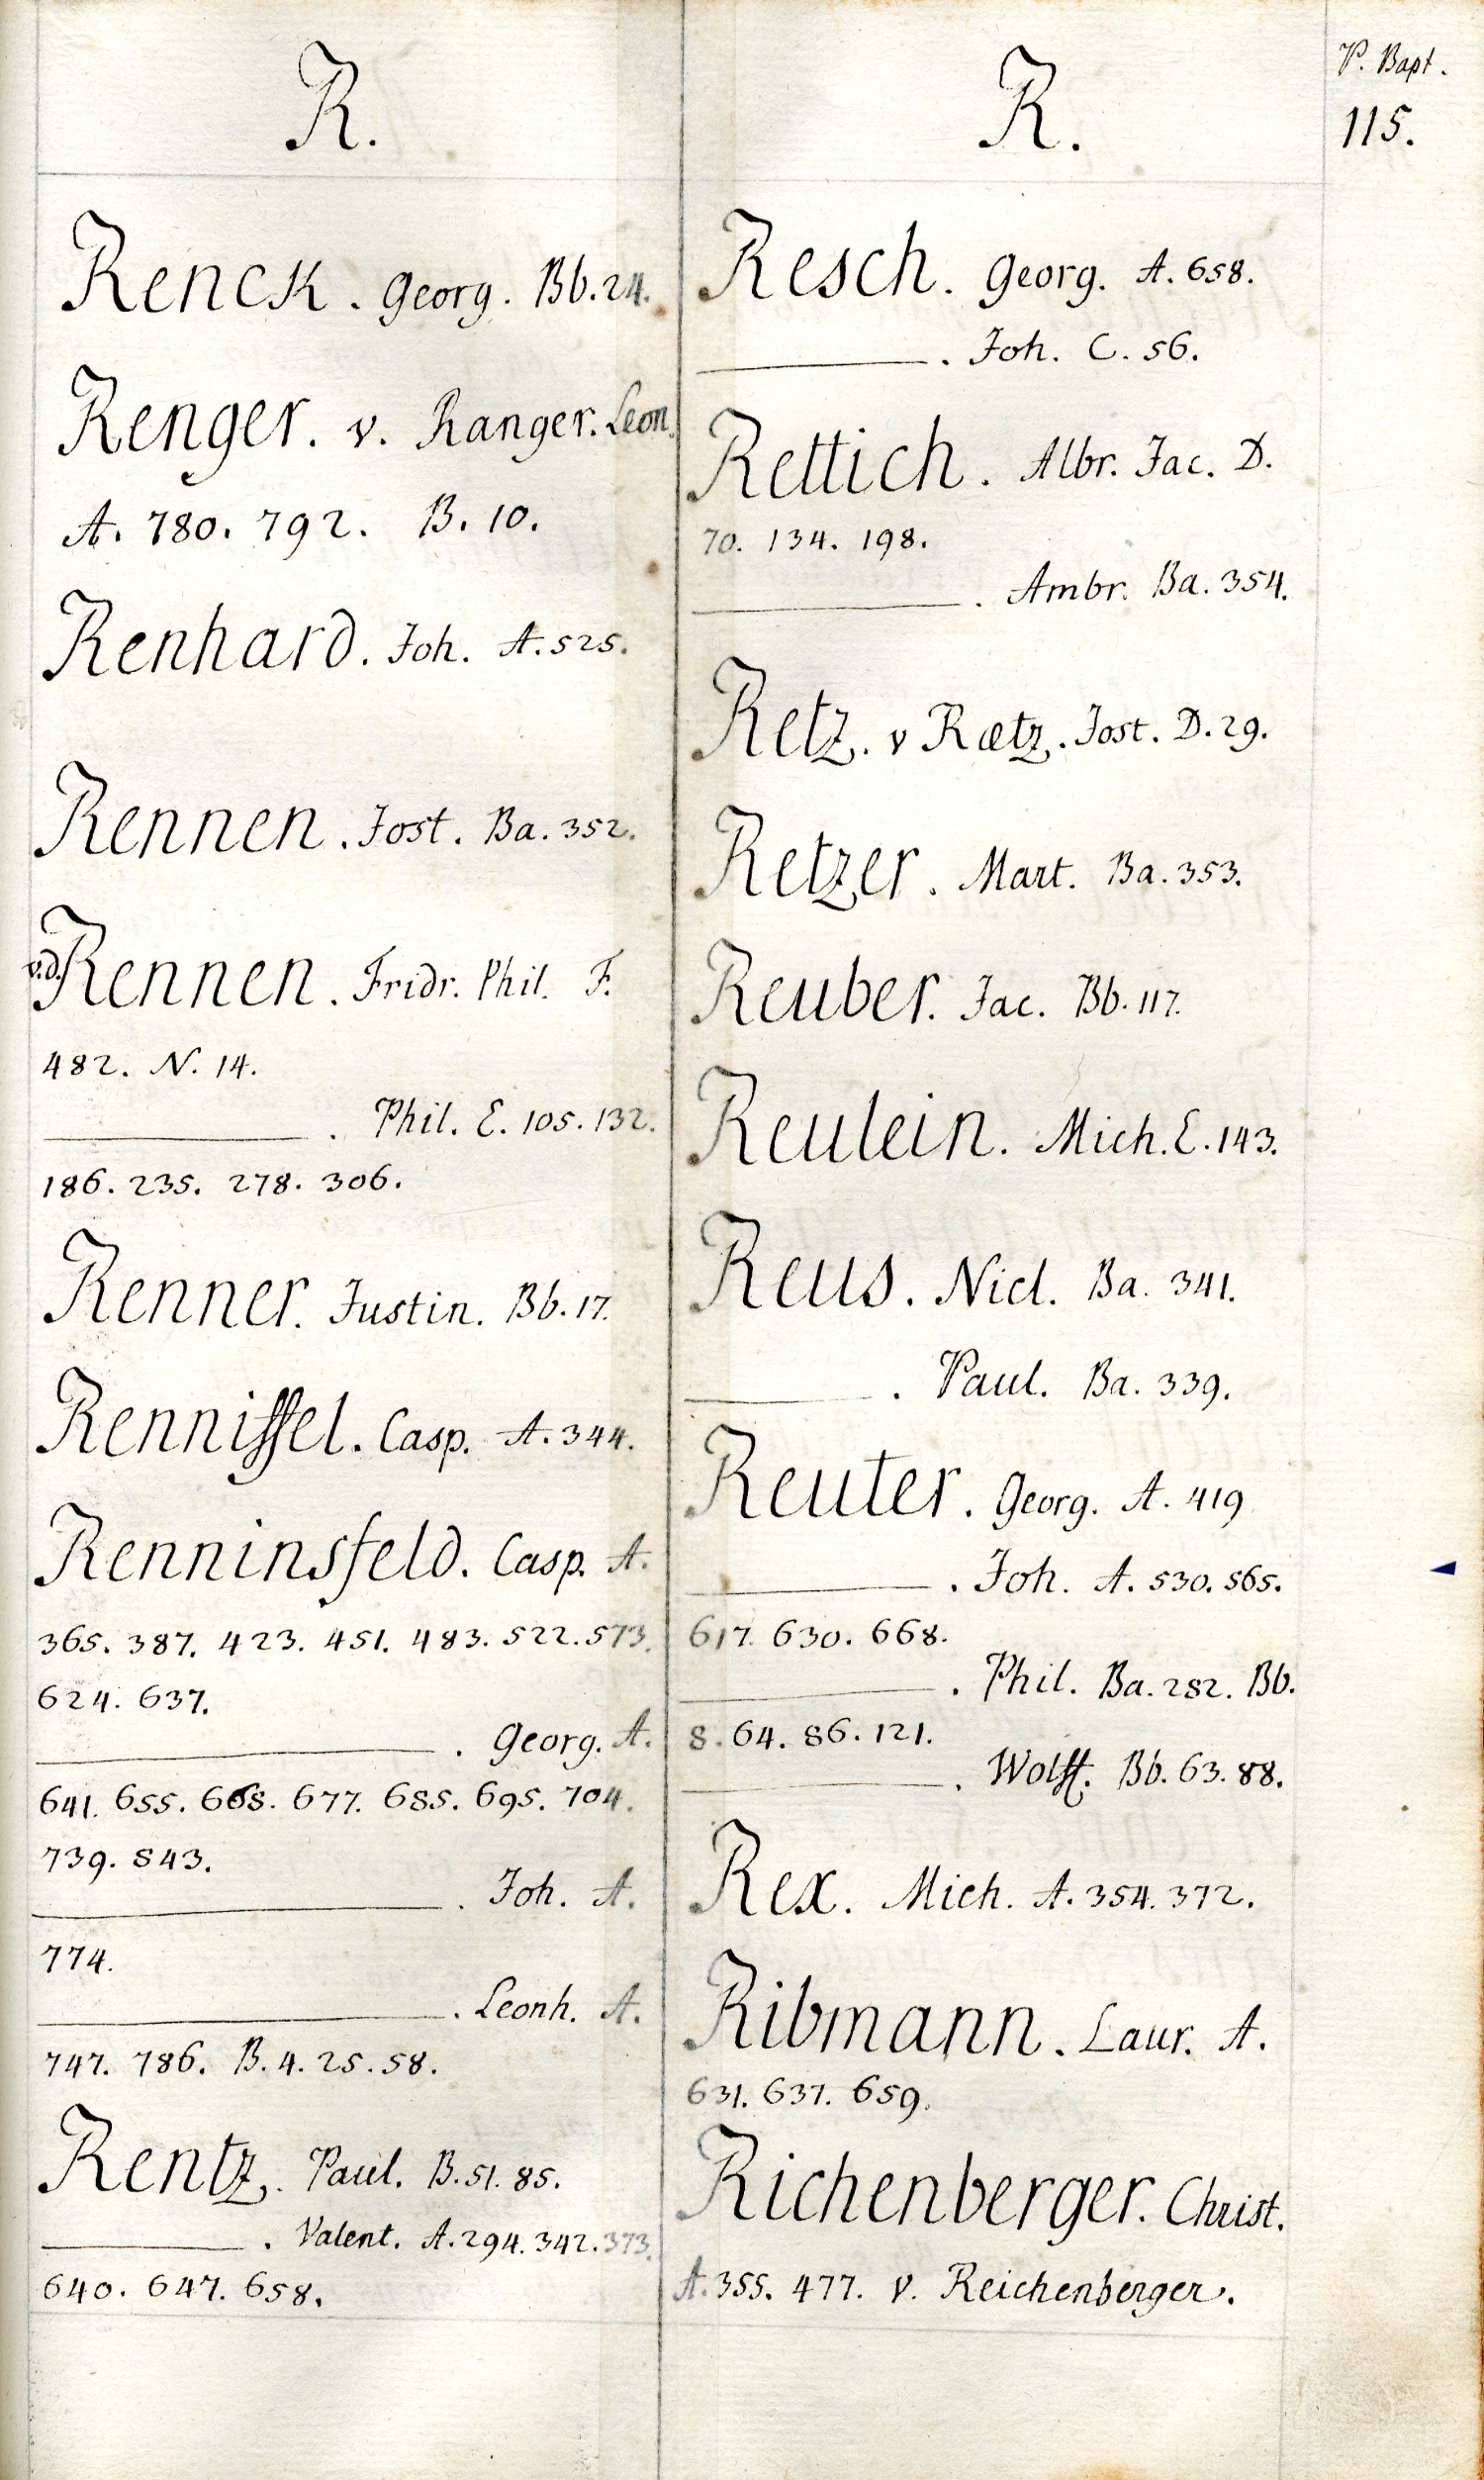 P. Bapt.
115.
R.
Renck. Georg. Bb. 24.
Renger. v. Ranger. Leon.
A. 780. 792. B. 10.
Renhard. Joh. A. 525.
Rennen. Jost. Ba. 352.
v.d. Rennen. Fridr. Phil. F.
482. N. 14.
———. Phil. E. 105. 132.
186. 235. 278. 306.
Renner. Justin. Bb. 17.
Renniffel. Casp. A. 344.
Renninsfeld. Casp. A.
365. 387. 423. 451. 483. 522. 573.
624. 637.
———. Georg. A.
641. 655. 668. 677. 685. 695. 704.
739. 843.
———. Joh. A.
774.
———. Leonh. A.
747. 786. B. 4. 25. 58.
Rentz. Paul. B. 51. 85.
———. Valent. A. 294. 342. 373.
640. 647. 658.
R.
Resch. Georg. A. 658.
———. Joh. C. 56.
Rettich. Albr. Jac. D.
70. 134. 198.
———. Ambr. Ba. 354.
Retz. v Rætz. Jost. D. 29.
Retzer. Mart. Ba. 353.
Reuber. Jac. Bb. 117.
Reulein. Mich. E. 143.
Reus. Nicl. Ba. 341.
———. Paul. Ba. 339.
Reuter. Georg. A. 419
———. Joh. A. 530. 565.
617. 630. 668.
———. Phil. Ba. 282. Bb.
8. 64. 86. 121.
———. Wolff. Bb. 63. 88.
Rex. Mich. A. 354. 372.
Ribmann. Laur. A.
631. 637. 659.
Richenberger. Christ.
A. 355. 477. v. Reichenberger.